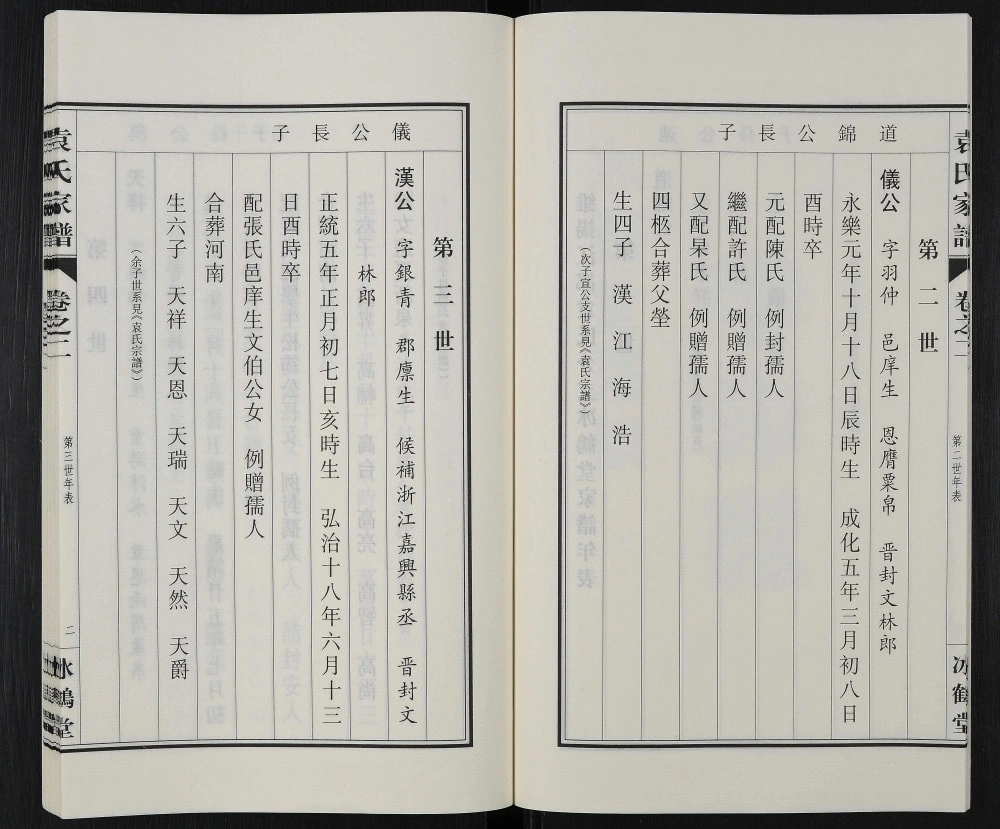 道錦公長子
第二世
儀公 字羽仲 邑庠生 恩膺粟帛 晋封文林郎
永樂元年十月十八日辰時生 成化五年三月初八日
酉時卒
元配陳氏 例封孺人
繼配許氏 例贈孺人
又配杲氏 例贈孺人
四柩合葬父塋
生四子 漢 江 海 浩
(次子宣公支世系見《袁氏宗譜》)
袁氏家譜 卷之二 第二世年表 冰鶴堂
儀公長子
第三世
漢公 字銀青 郡廩生 候補浙江嘉興縣丞 晋封文
林郎
正統五年正月初七日亥時生 弘治十八年六月十三
日酉時卒
配張氏邑庠生文伯公女 例贈孺人
合葬河南
生六子 天祥 天恩 天瑞 天文 天然 天爵
(余子世系見《袁氏宗譜》)
袁氏家譜 卷之二 第三世年表 二 冰鶴堂